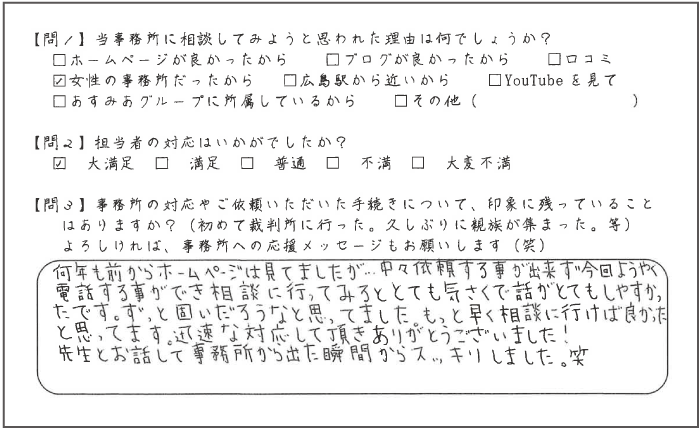 【問1】当事務所に相談してみようと思われた理由は何でしょうか？
□ホームページが良かったから □ブログが良かったから □口コミ
☑女性の事務所だったから □広島駅から近いから □YouTubeを見て
□あすみあグループに所属しているから □その他（ ）
【問2】担当者の対応はいかがでしたか？
☑ 大満足 □ 満足 □ 普通 □ 不満 □ 大変不満
【問3】事務所の対応やご依頼いただいた手続きについて、印象に残っていること
はありますか？（初めて裁判所に行った。久しぶりに親族が集まった。等）
よろしければ、事務所への応援メッセージもお願いします（笑）
何年も前からホームページは見てましたが…中々依頼する事が出来ず今回ようやく
電話する事ができ相談に行ってみるととても気さくで話がとてもしやすかっ
たです。ずっと固いだろうなと思ってました。もっと早く相談に行けば良かった
と思ってます。迅速な対応して頂きありがとうございました！
先生とお話して事務所から出た瞬間からスッキリしました。笑